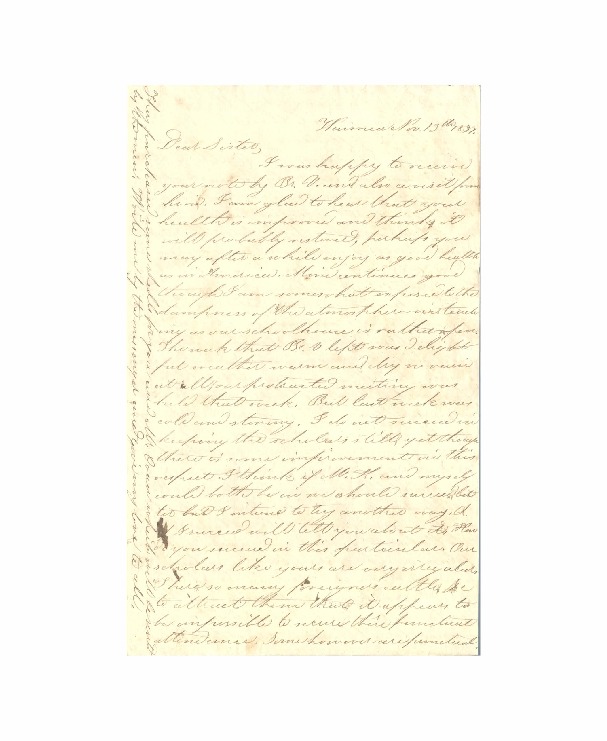 Waimea Nov. 13th 1837.
Dear Sister,
I was happy to receive
your note by Br. V. and also a visit from
him. I am glad to hear that your
health is improved and think it
will probably restored, perhaps you
may after a while enjoy as good health
as in America. Mine continues good
though I am somewhat exposed to the
dampness of the atmosphere in teach
ing as our schoolhouse is rather open.
The week that Br. V left was delight
ful weather warm and dry no rain
at all our protracted meeting was
held that week. But last week was
cold and stormy. I do not succeed in
keeping the scholars still, yet though
there is some improvement in this
respect I think if Mr. K. and myself
could both be in we should succeed bet
ter but I intend to try another way. If
I succeed will tell you about it. How
do you succeed in this particular. Our
scholars like yours are very irregular
There so many foreigners cattle &c
to attract them that it appears to
be impossible to secure their punctual
attendance. Some however are punctual.
They purchased some for you and will be sent
by give my love to all.